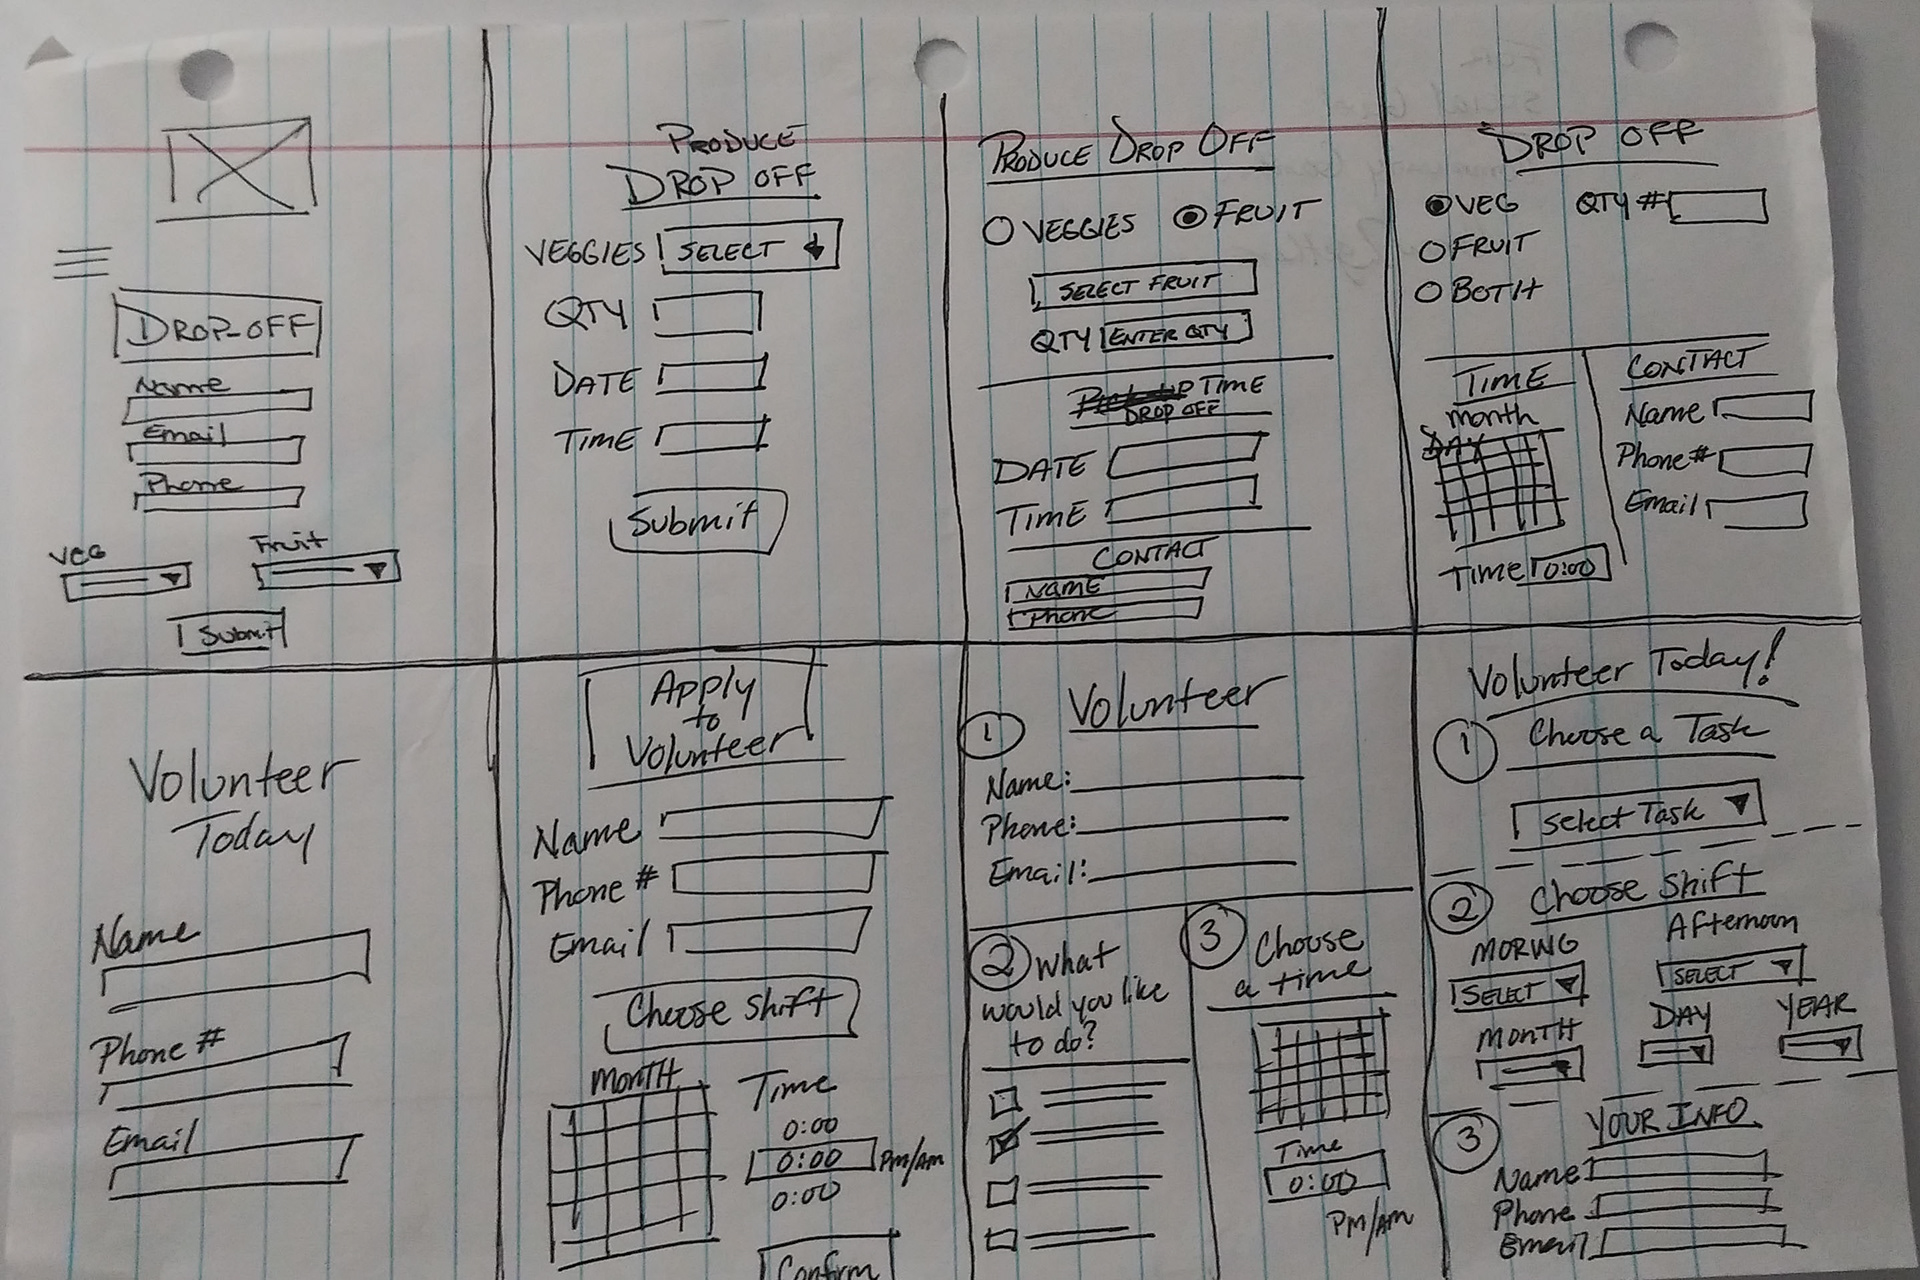 DROP-OFF
Name
Email
Phone
VEG Fruit
Submit
PRODUCE
DROP OFF
VEGGIES SELECT
QTY
DATE
TIME
Submit
PRODUCE DROP OFF
VEGGIES FRUIT
SELECT FRUIT
QTY ENTER QTY
TIME
DROP OFF
DATE
TIME
CONTACT
NAME
Phone
DROP OFF
VEG QTY #
FRUIT
BOTH
TIME
month
DAY
Time 0:00
CONTACT
Name
Phone#
Email
Volunteer
Today
Name
Phone #
Email
Apply
to
Volunteer
Name
Phone #
Email
Choose Shift
MONTH Time
0:00
0:00 Pm/AM
0:00
Confirm
Volunteer
1
Name:
Phone:
Email:
2 What
would you like
to do?
3 Choose
a time
Time
0:00
Pm/AM
Volunteer Today!
1 Choose a Task
Select Task
2 Choose Shift
MORNG Afternoon
SELECT SELECT
MONTH DAY YEAR
3 YOUR INFO.
Name
Phone
Email